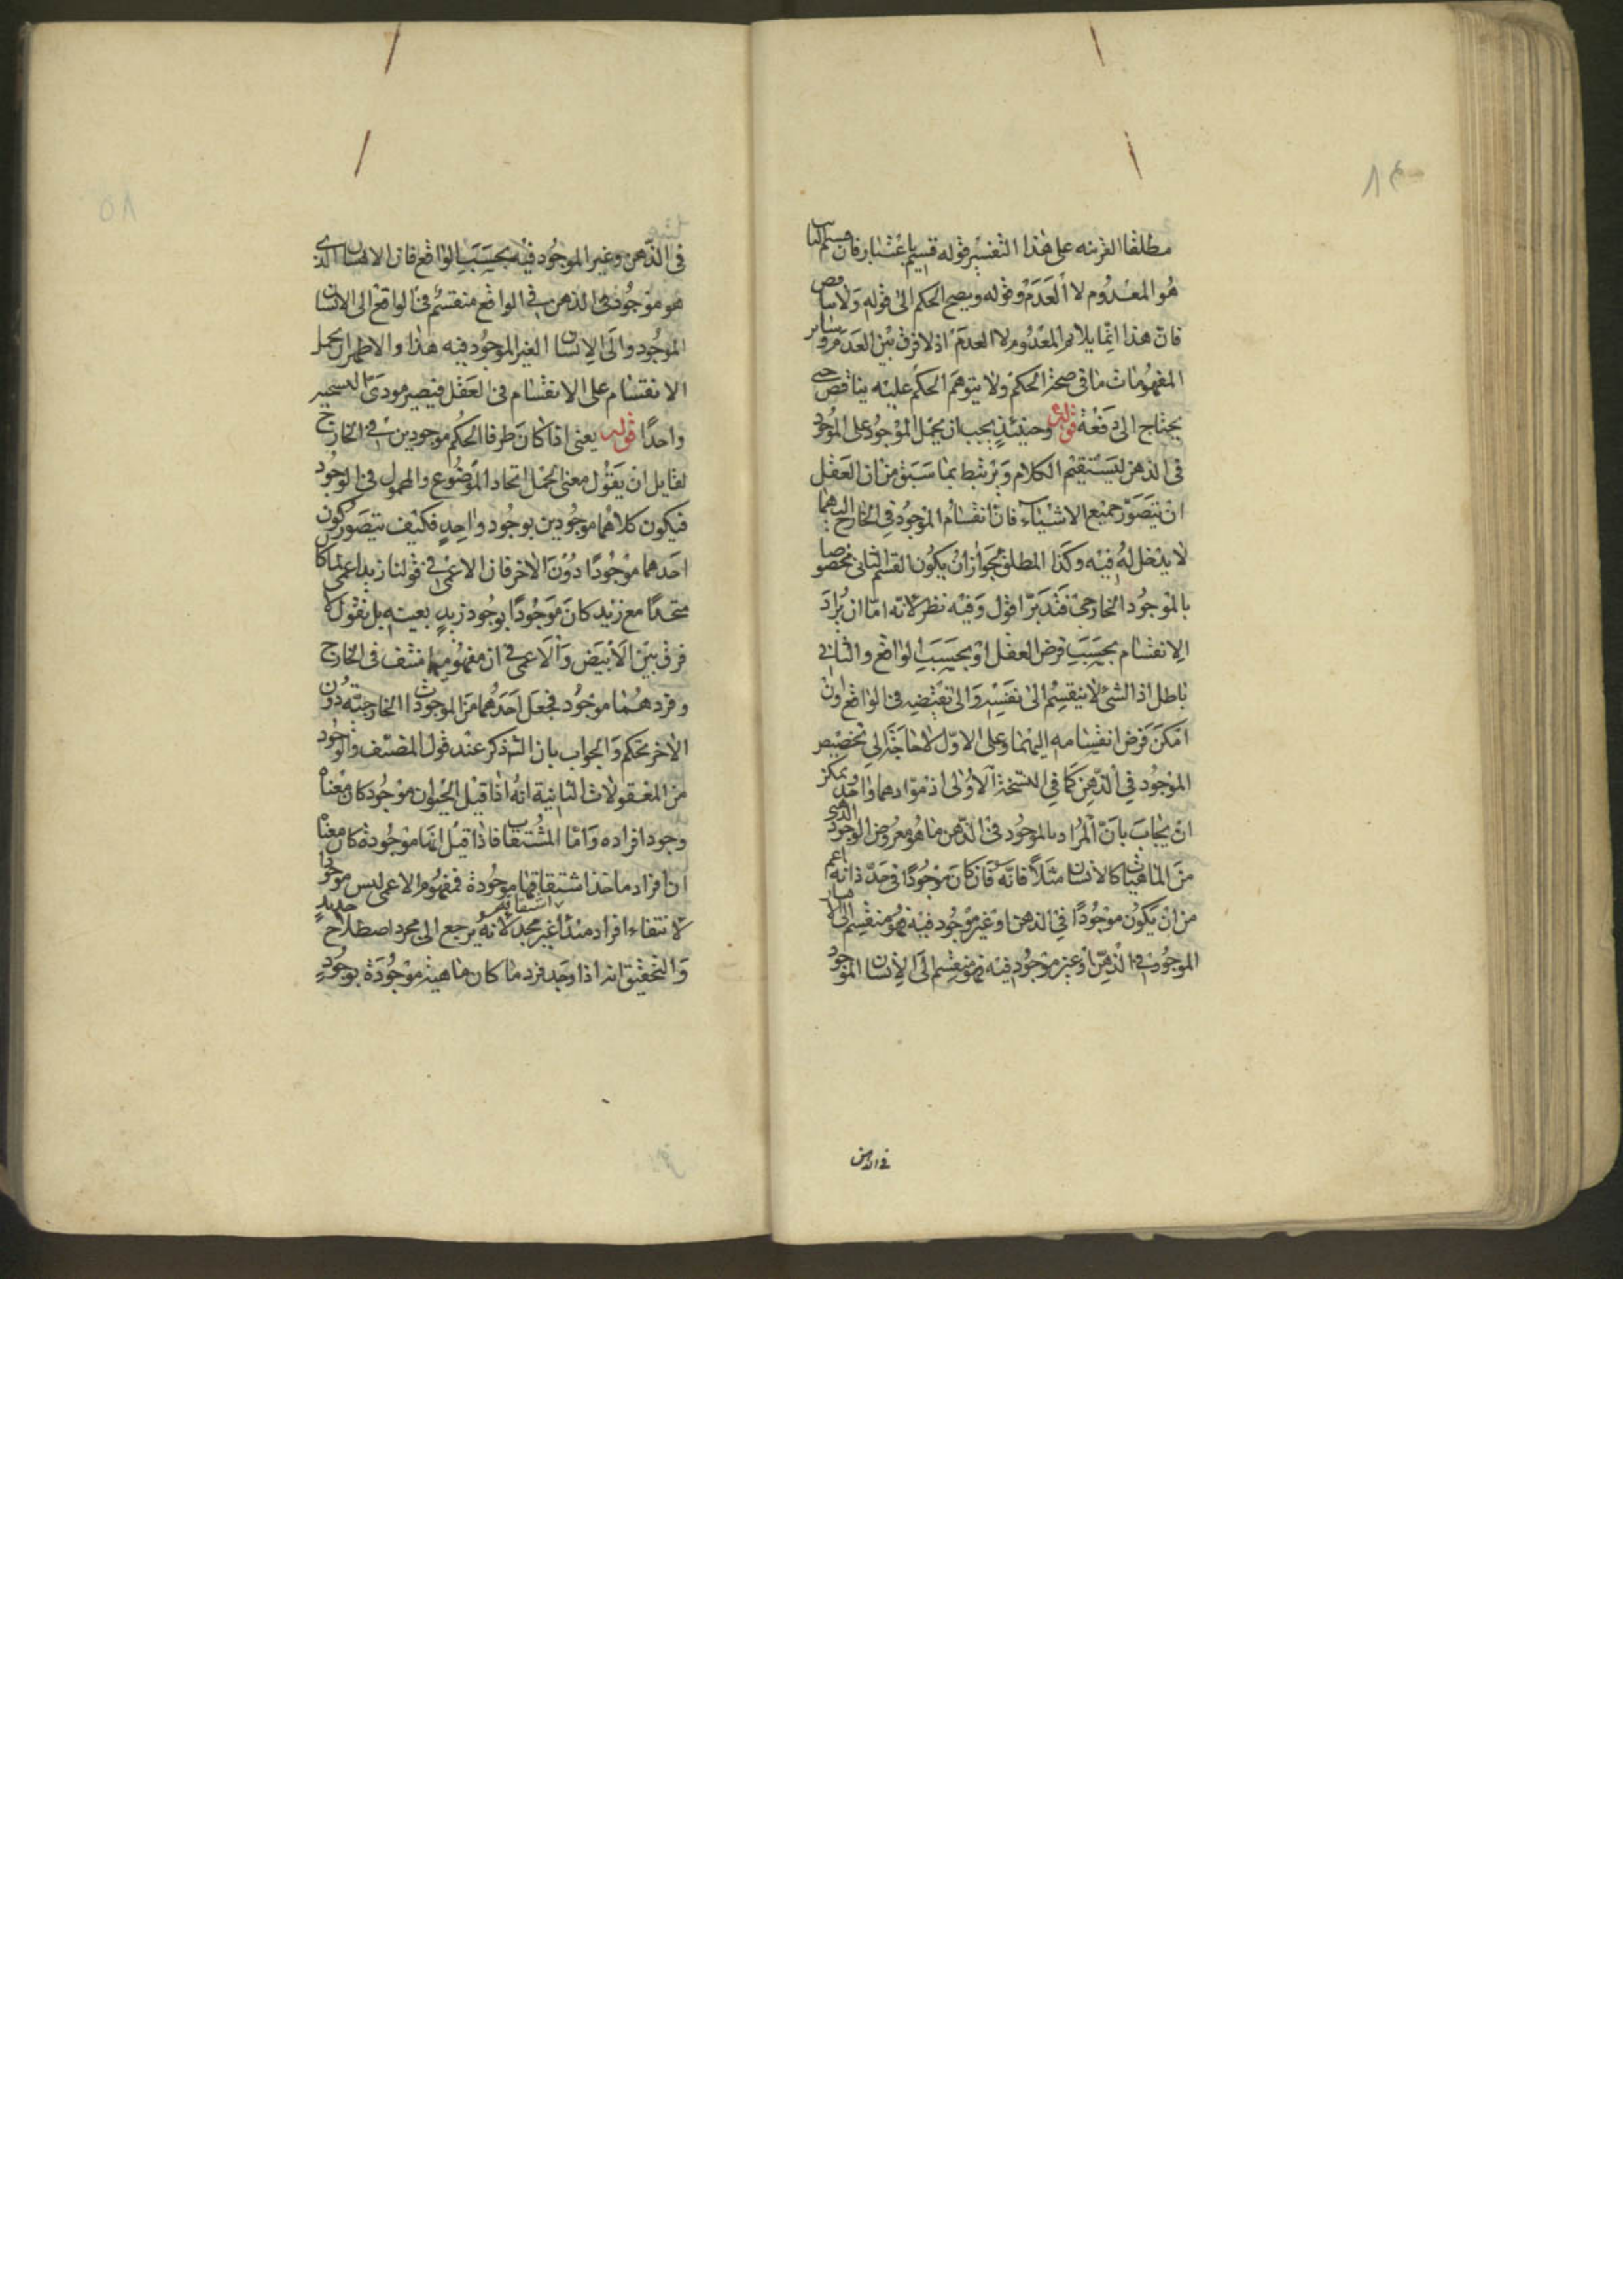 مطلقا القرينه على هذا التفسير قوله قسيم باعتبار فان قسيم الثابت
هو المعدوم لا العدم وقوله ويصح الحكم الى قوله ولا تناقص
فان هذا انما يلايم المعدوم لا العدم اذ لا فرق بين العدم وساير
المفهومات ما في صحة الحكم ولا يتوهم الحكم عليه يناقض حتى
يحتاج الى دفعه قوله وحينئذ يجب ان يحمل الموجود على الموجود
في الذهن ليستقيم الكلام ويرتبط بما سبق من ان العقل
ان يتصور جميع الاشياء فان انقسام الموجود في الخارج اليهما
لا يدخل له فيه وكذا المطلق بجواز ان يكون القسم الثاني مخصوصا
بالموجود الخارجي فتدبر اقول وفيه نظر لانه اما ان يراد
الانقسام بحسب فرض العقل او بحسب الواقع والثاني
باطل اذ الشئ لا ينقسم الى نفسه والى نقيضه في الواقع وان
امكن فرض انقسامه اليهما وعلى الاول لا حاجة الى تخصيص
الموجود في الذهن كما في النسخة الاولى اذ موادهما واحد ويمكن
ان يجاب بان المراد بالموجود في الذهن ما هو معروض الوجود الذهني
من الماهيات كالانسان مثلا فانه فان كان موجودا في حد ذاته اعم
من ان يكون موجودا في الذهن او غير موجود فيه فهو منقسم الى الانسان
الموجود في الذهن او غير موجود فيه فهو منقسم الى الانسان الموجود
في الذهن
في الذهن وغير الموجود فيه بحسب الواقع فان الانسان الذي
هو موجود في الذهن في الواقع منقسم في الواقع الى الانسان
الموجود والى الانسان الغير الموجود فيه هذا والاظهر ان يحمل
الانقسام على الانقسام في العقل فيصير مودى النسختين
واحدا قوله يعني اذا كان طرفا الحكم موجودين في الخارج
لقايل ان يقول معنى الحمل اتحاد الموضوع والمحمول في الوجود
فيكون كلاهما موجودين بوجود واحد فكيف يتصور كون
احدهما موجودا دون الاخر فان الاعمى في قولنا زيد اعمى لما كان
متحدا مع زيد كان موجودا بوجود زيد بعينه بل نقول لا
فرق بين الابيض والاعمى في ان مفهوميهما منتف في الخارج
وفردهما موجود فجعل احدهما من الموجودات الخارجية دون
الاخر تحكم والجواب بان الشـ ذكر عند قول المصنف والوجود
من المعقولات الثانية انه اذا قيل الحيوان موجود كان معناه
وجود افراده واما المشتقات فاذا قيل انها موجودة كان معناه
ان افراد ماخذ اشتقاقها موجودة فمفهوم الاعمى ليس موجودا
لانتفاء افراد مبدأ اشتقاقه غير مجد لانه يرجع الى مجرد اصطلاح جديد
والتحقيق انه اذا وجد فرد ما كان ماهيته موجودة بوجود